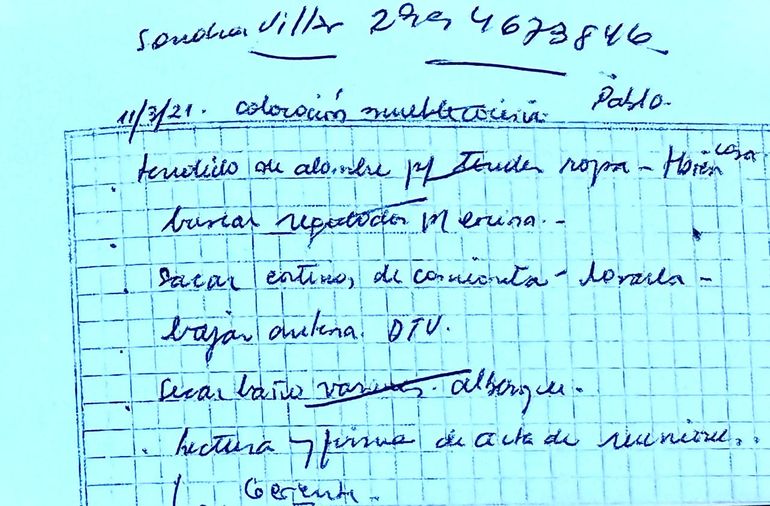 Sandra Villar 299 4673846
11/3/21. colocación mueble cocina. Pablo.
tendido de alambre p/ tender ropa - casa
buscar regulador p/ cocina. -
sacar cortinas de camioneta - lavarla -
bajar antena DTV.
secar baño varones. albergue.
lectura y firma de acta de reunione..